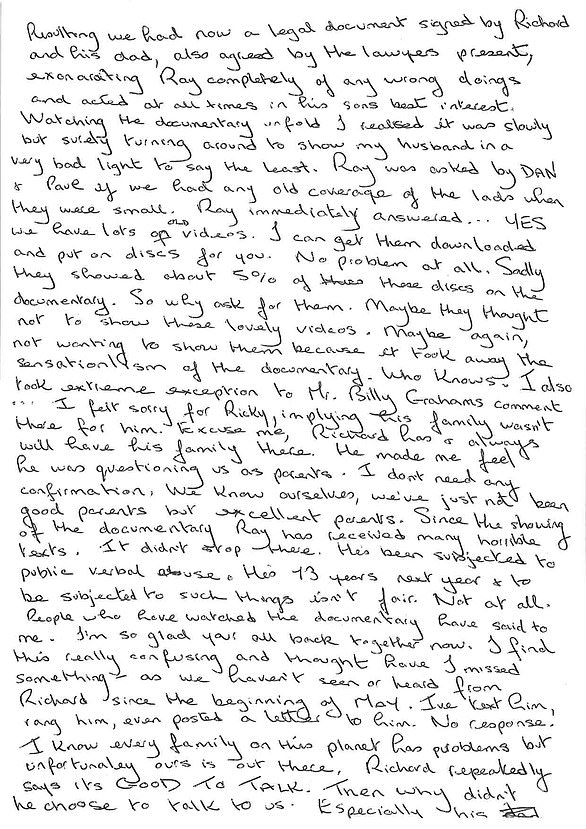 Resulting we had now a legal document signed by Richard
and his dad, also agreed by the lawyers present,
exonarating Ray completely of any wrong doings
and acted at all times in his sons best interest.
Watching the documentary unfold I realised it was slowly
but surely turning around to show my husband in a
very bad light to say the least. Ray was asked by DAN
& Paul if we had any old coverage of the lads when
they were small. Ray immediately answered... YES
we have lots of old videos. I can get them downloaded
and put on discs for you. No problem at all. Sadly
they showed about 5% of these discs on the
documentary. So why ask for them. Maybe they thought
not to show these lovely videos. Maybe again,
not wanting to show them because it took away the
sensationalism of the documentary. Who knows. I also
took extreme exception to Mr. Billy Grahams comment
... I felt sorry for Ricky, implying his family wasn't
there for him. Excuse me, Richard has & always
will have his family there. He made me feel
he was questioning us as parents. I dont need any
confirmation. We know ourselves, we've just not been
good parents but excellent parents. Since the showing
of the documentary Ray has received many horrible
texts. It didn't stop there. He's been subjected to
public verbal abuse. He's 73 years next year & to
be subjected to such things isn't fair. Not at all.
People who have watched the documentary have said to
me. I'm so glad your all back together now. I find
this really confusing and thought have I missed
something - as we haven't seen or heard from
Richard since the beginning of May. I've text him,
rang him, even posted a letter to him. No response.
I know every family on this planet has problems but
unfortunaley ours is out there, Richard repeatedly
says its GOOD TO TALK. Then why didn't
he choose to talk to us. Especially his